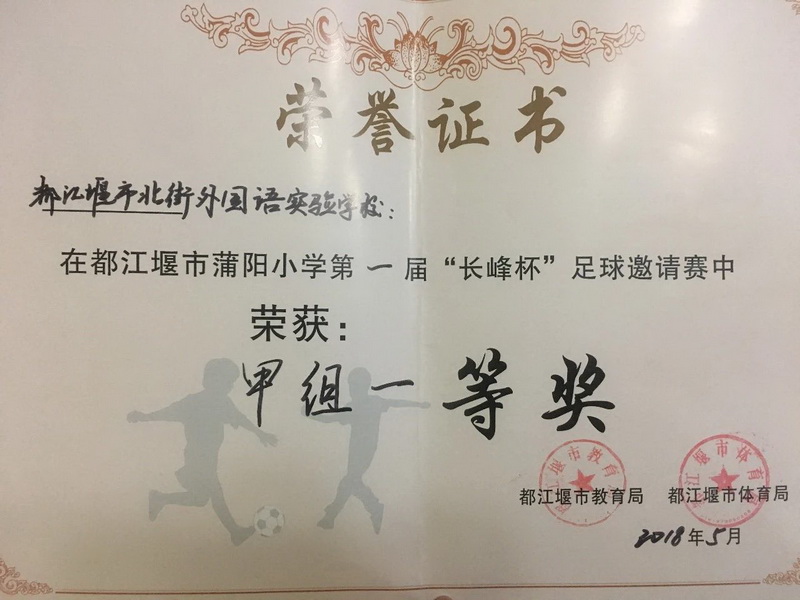 荣誉证书
都江堰市北街外国语实验学校：
在都江堰市蒲阳小学第一届“长峰杯”足球邀请赛中
荣获：
甲组一等奖
都江堰市教育局 都江堰市体育局
2018年5月